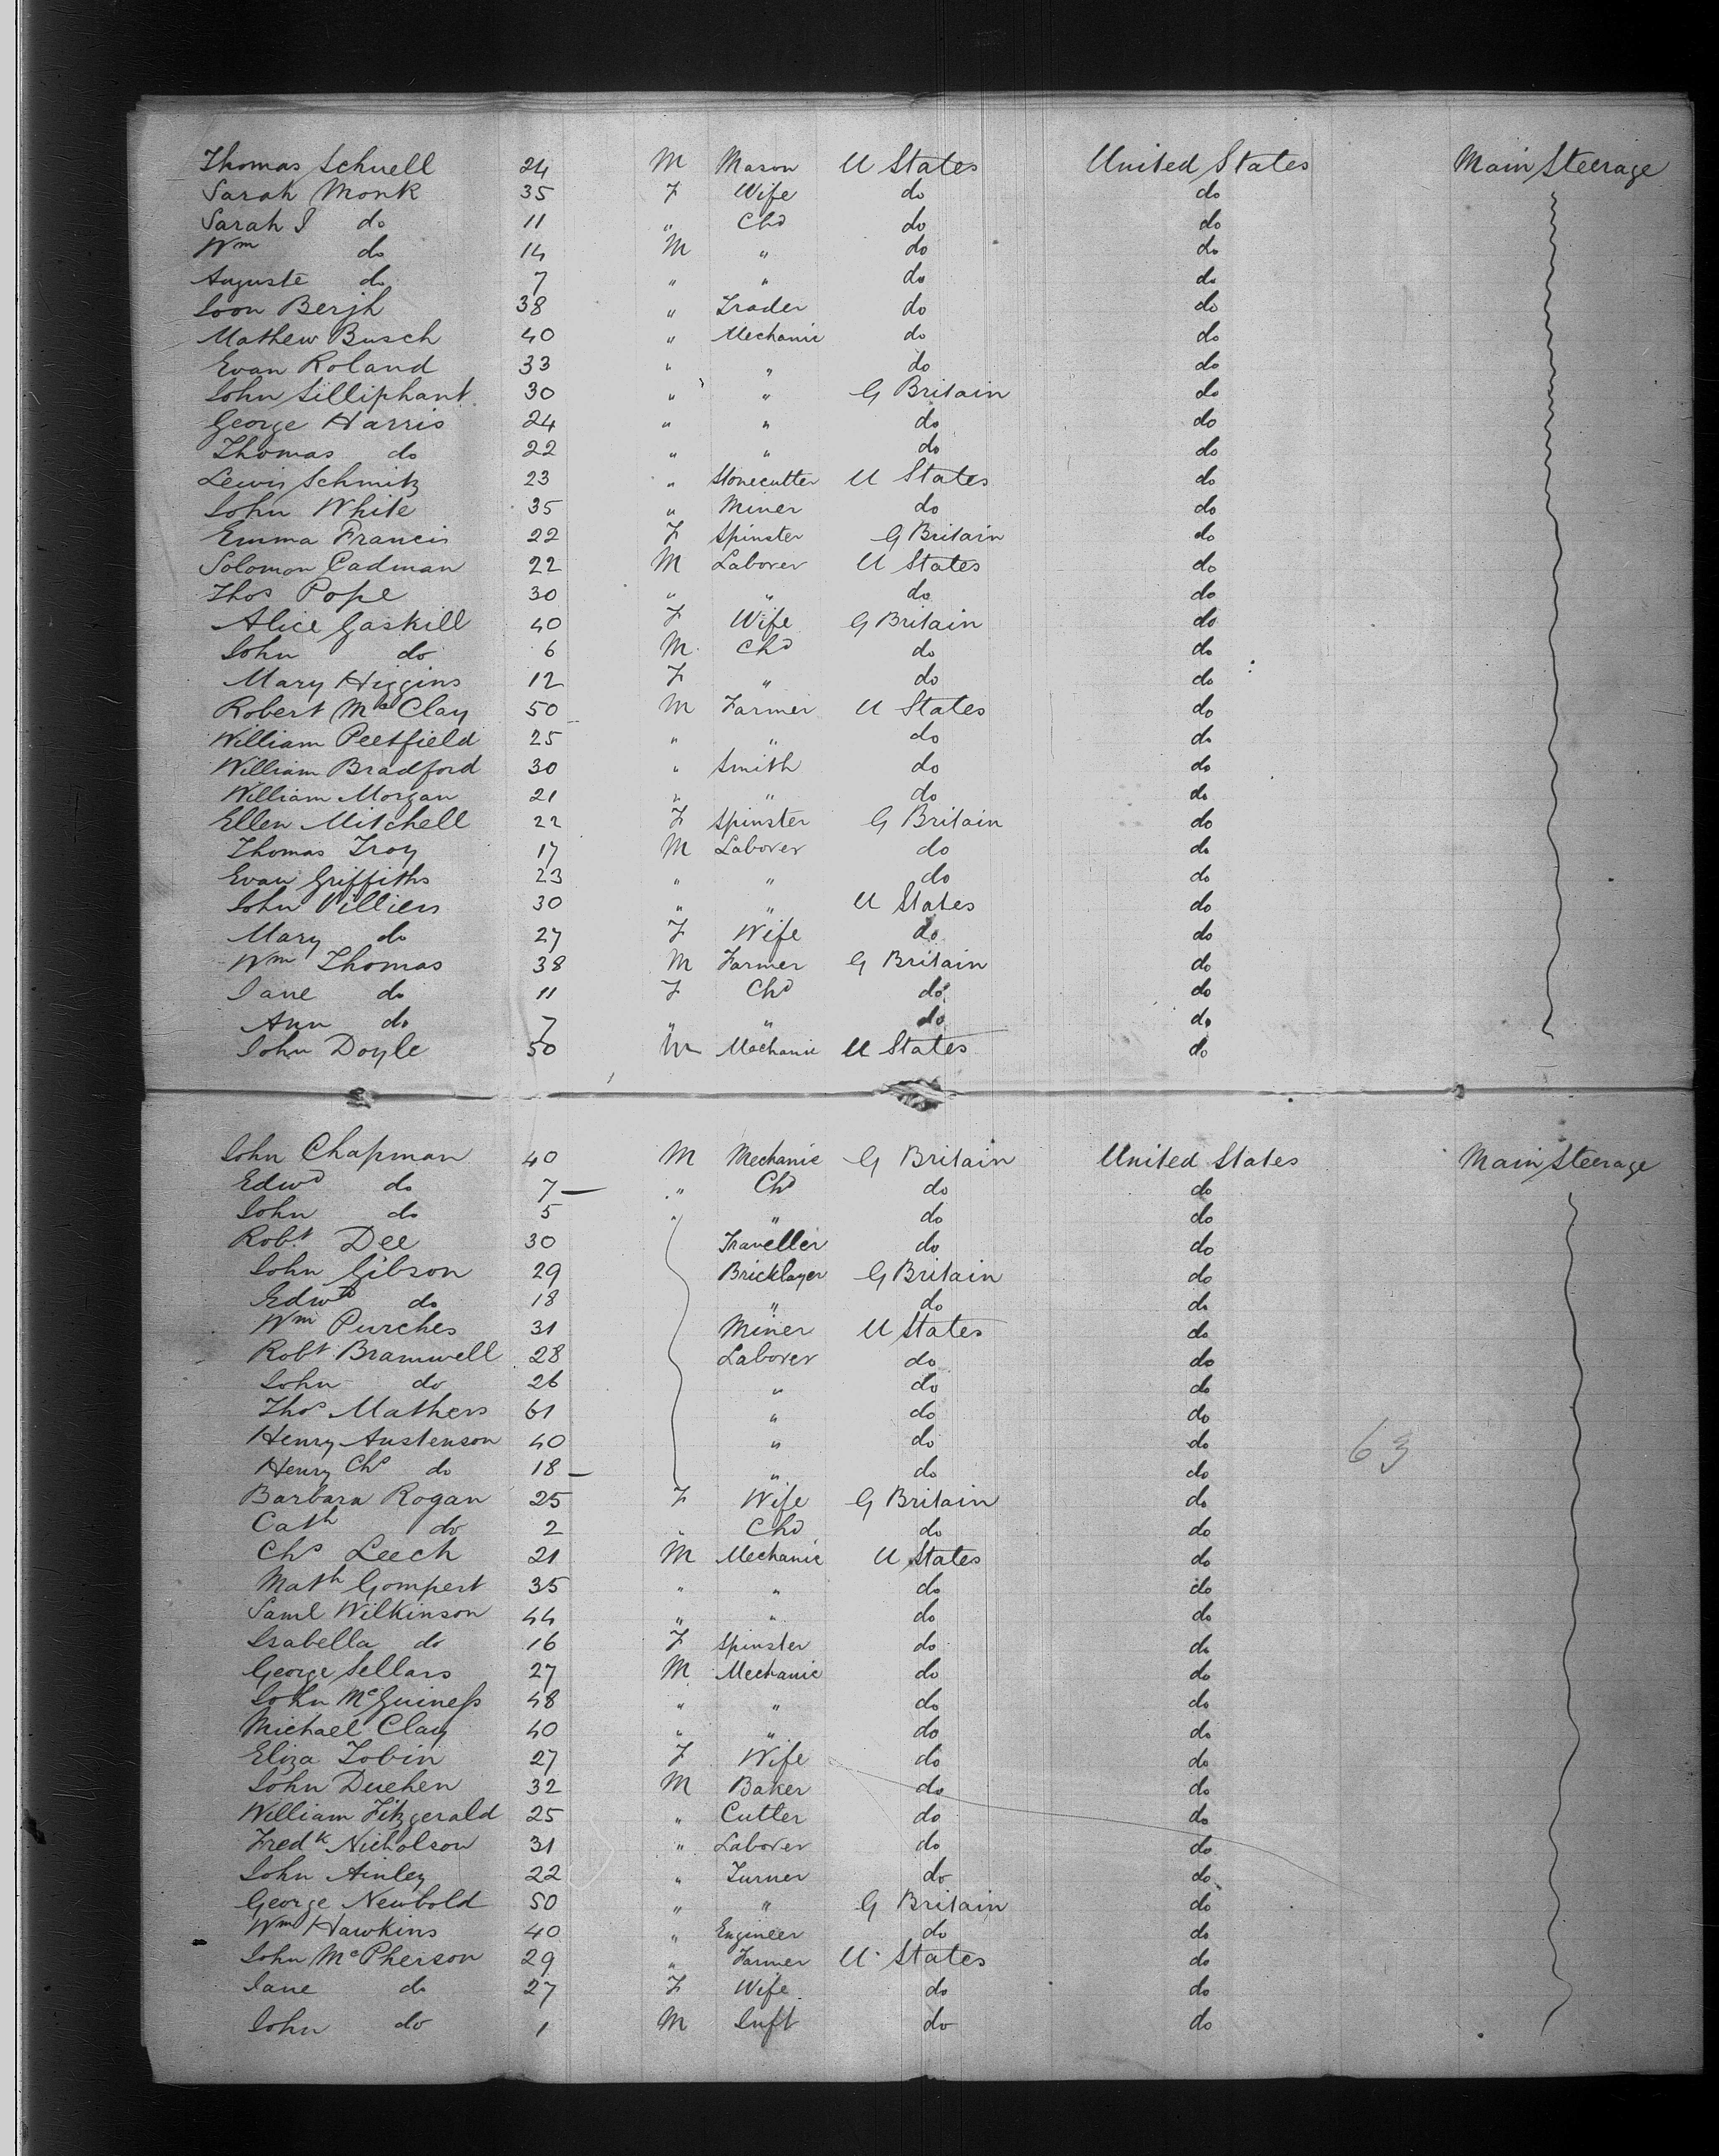 Thomas Schnell 24 M Mason U States United States Main Steerage
Sarah Monk 35 F Wife do do
Sarah J do 11 " Chd do do
Wm do 14 M " do do
Auguste do 7 " " do do
Soon Bergh 38 " Trader do do
Mathew Busch 40 " Mechanic do do
Evan Roland 33 " " do do
John Silliphant 30 " " G Britain do
George Harris 24 " " do do
Thomas do 22 " " do do
Lewis Schmitz 23 " Stonecutter U States do
John White 35 " Miner do do
Emma Francis 22 F Spinster G Britain do
Solomon Cadman 22 M Laborer U States do
Thos Pope 30 " " do do
Alice Gaskill 40 F Wife G Britain do
John do 6 M Chd do do
Mary Higgins 12 F " do do
Robert McClay 50 M Farmer U States do
William Peetfield 25 " " do do
William Bradford 30 " Smith do do
William Morgan 21 " " do do
Ellen Mitchell 22 F Spinster G Britain do
Thomas Troy 17 M Laborer do do
Evan Griffiths 23 " " do do
John Villiers 30 " " U States do
Mary do 27 F Wife do do
Wm Thomas 38 M Farmer G Britain do
Jane do 11 F Chd do do
Ann do 7 " " do do
John Doyle 50 M Mechanic U States do
John Chapman 40 M Mechanic G Britain United States Main Steerage
Edwd do 7 " Chd do do
John do 5 " " do do
Robt Dee 30 Traveller do do
John Gibson 29 Bricklayer G Britain do
Edwd do 18 " do do
Wm Purches 31 Miner U States do
Robt Bramwell 28 Laborer do do
John do 26 " do do
Thos Mathers 61 " do do
Henry Austenson 40 " do do 63
Henry Chs do 18 " do do
Barbara Rogan 25 F Wife G Britain do
Cath do 2 " Chd do do
Chs Leech 21 M Mechanic U States do
Math Gompert 35 " " do do
Saml Wilkinson 44 " " do do
Isabella do 16 F Spinster do do
George Sellars 27 M Mechanic do do
John McGuiness 48 " " do do
Michael Clay 40 " " do do
Eliza Tobin 27 F Wife do do
John Duehen 32 M Baker do do
William Fitzgerald 25 " Cutler do do
Fredk Nicholson 31 " Laborer do do
John Ainley 22 " Turner do do
George Newbold 50 " " G Britain do
Wm Hawkins 40 " Engineer do do
John McPherson 29 " Farmer U States do
Jane do 27 F Wife do do
John do 1 M Inft do do